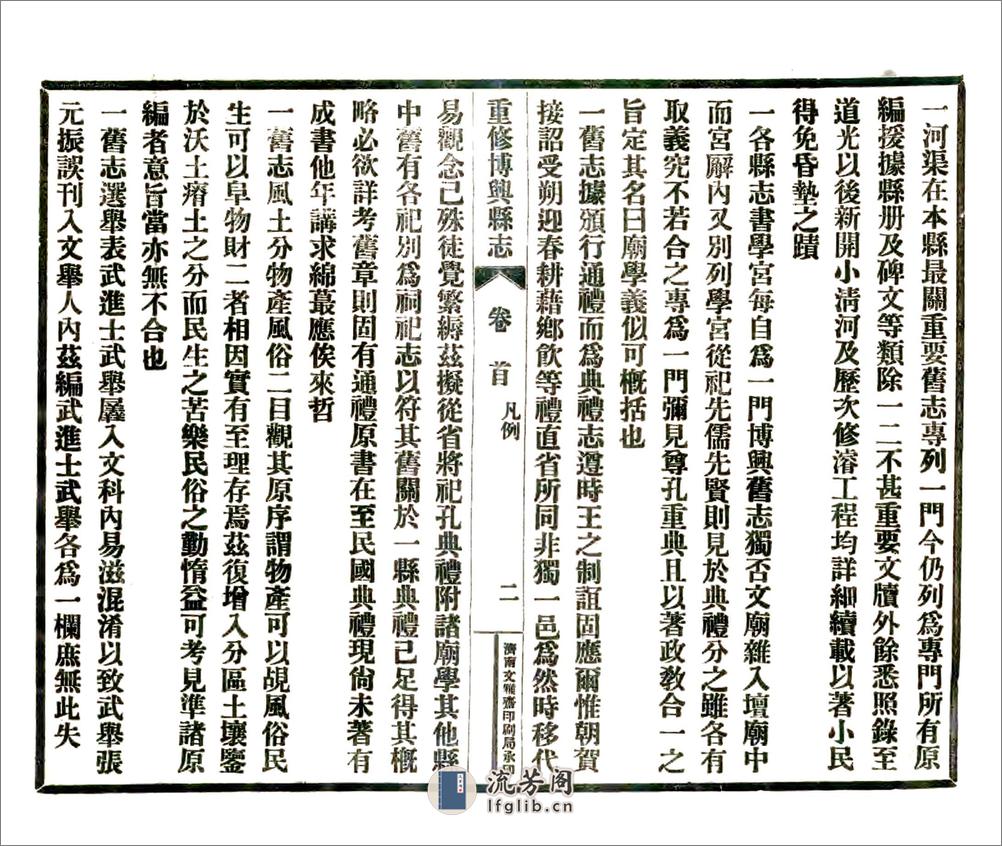 一河渠在本縣最關重要舊志專列一門今仍列爲專門所有原
編援據縣册及碑文等類除一二不甚重要文牘外餘悉照錄至
道光以後新開小淸河及歷次修濬工程均詳細續載以著小民
得免昏墊之蹟
一各縣志書學宮每自爲一門博興舊志獨否文廟雜入壇廟中
而宮廨內又別列學宮從祀先儒先賢則見於典禮分之雖各有
取義究不若合之專爲一門彌見尊孔重典且以著政敎合一之
旨定其名曰廟學義似可概括也
一舊志據頒行通禮而爲典禮志遵時王之制誼固應爾惟朝賀
接詔受朔迎春耕藉鄉飮等禮直省所同非獨一邑爲然時移代
重修博興縣志 卷首 凡例 二 濟南文雅齋印刷局承印
易觀念已殊徒覺繁縟茲擬從省將祀孔典禮附諸廟學其他縣
中舊有各祀別爲祠祀志以符其舊關於一縣典禮已足得其概
略必欲詳考舊章則固有通禮原書在至民國典禮現尙未著有
成書他年講求綿蕞應俟來哲
一舊志風土分物產風俗二目觀其原序謂物產可以覘風俗民
生可以阜物財二者相因實有至理存焉茲復增入分區土壤鑒
於沃土瘠土之分而民生之苦樂民俗之勤惰益可考見準諸原
編者意旨當亦無不合也
一舊志選舉表武進士武舉羼入文科內易滋混淆以致武舉張
元振誤刊入文舉人內茲編武進士武舉各爲一欄庶無此失
流芳閣
lfglib.cn